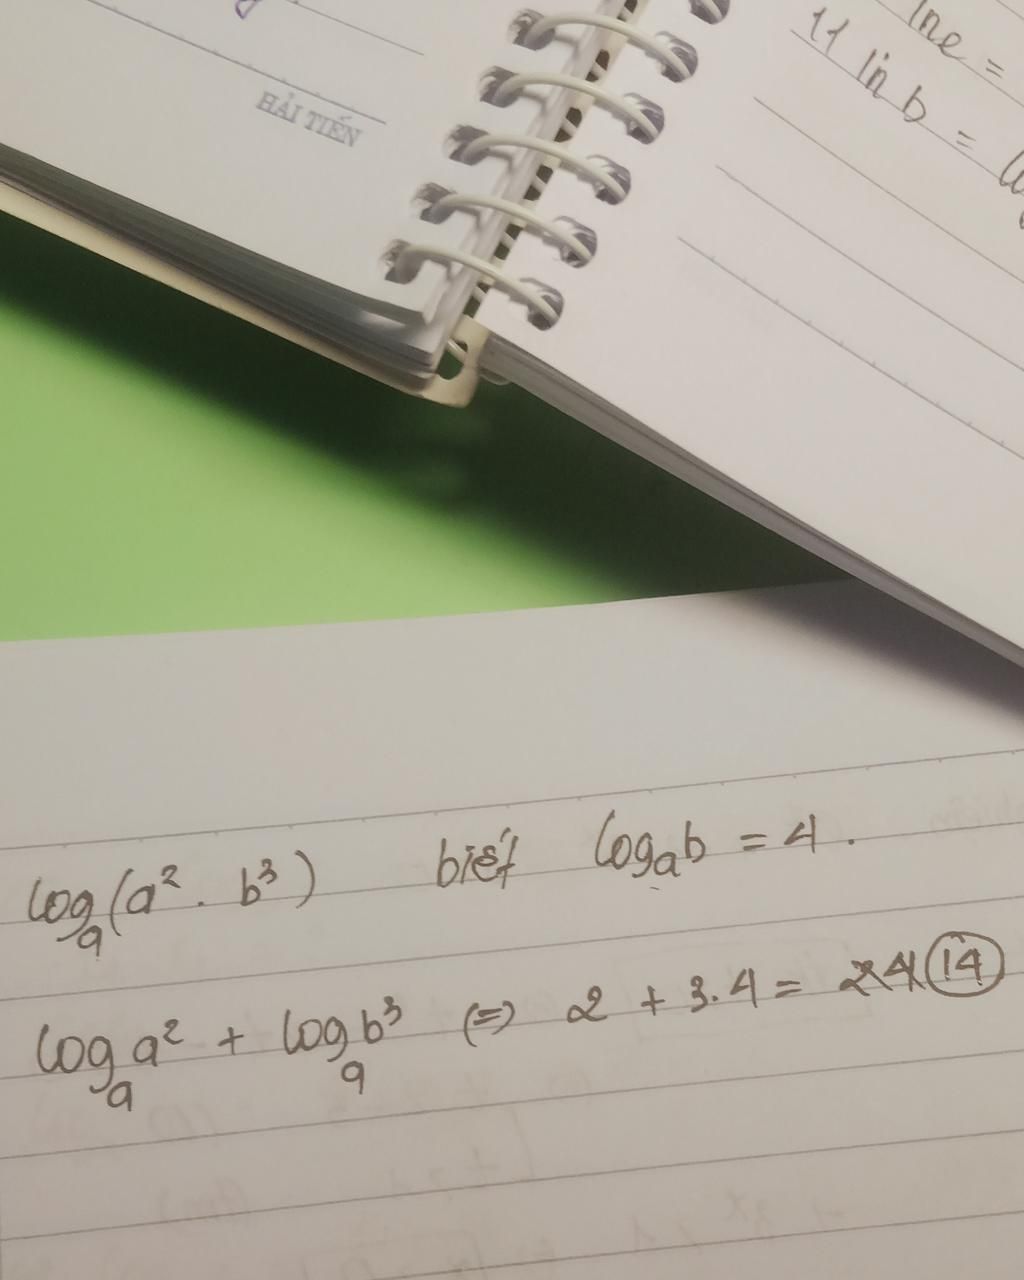 HẢI TIẾN
lne =
11 ln b =
log_a(a² . b³) biết log_a b = 4 .
log_a a² + log_a b³ (=) 2 + 3.4 = 14